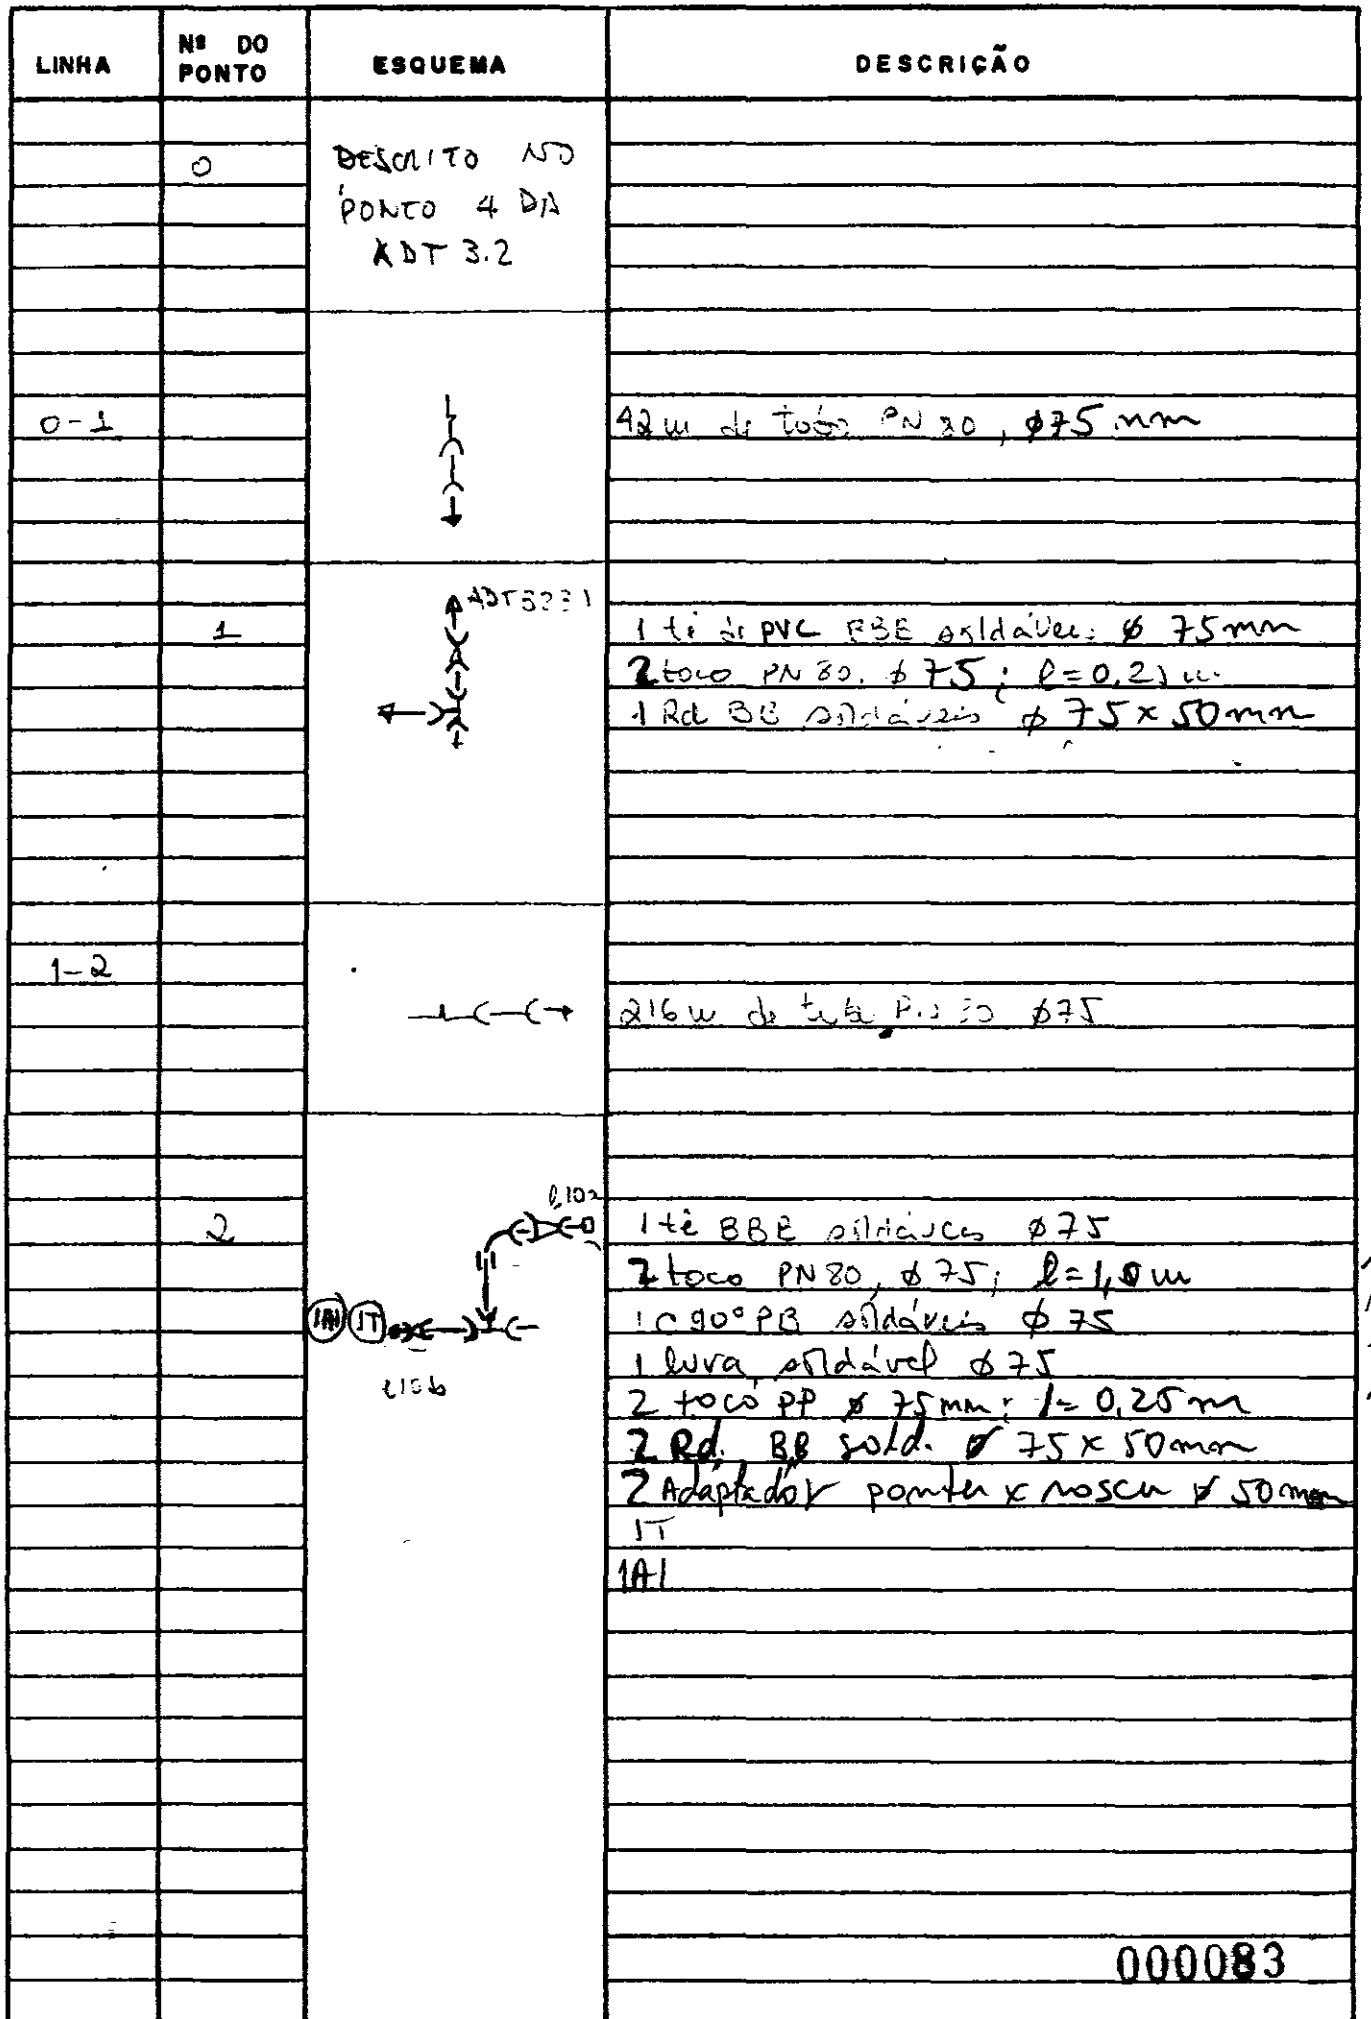 LINHA Nº DO PONTO ESQUEMA DESCRIÇÃO
0 DESCRITO NO
PONTO 4 DA
ADT 3.2
0-1 42 m de PN 80, ø75 mm
1
1 tê de PVC BBE soldáveis ø 75 mm
2 toco PN 80, ø 75; l=0,25 m
1 Rd BB soldáveis ø 75 x 50 mm
1-2
216 m de tubo ø75
2 1 tê BBE soldáveis ø75
2 toco PN 80, ø 75; l=1,0 m
1 C 90° PB soldáveis ø 75
1A1 1T
1 luva soldável ø 75
2 toco PP ø 75 mm; l= 0,25 m
2 Rd. BB sold. ø 75 x 50 mm
2 Adaptador ponta x rosca ø 50 mm
1T
1A1
000083